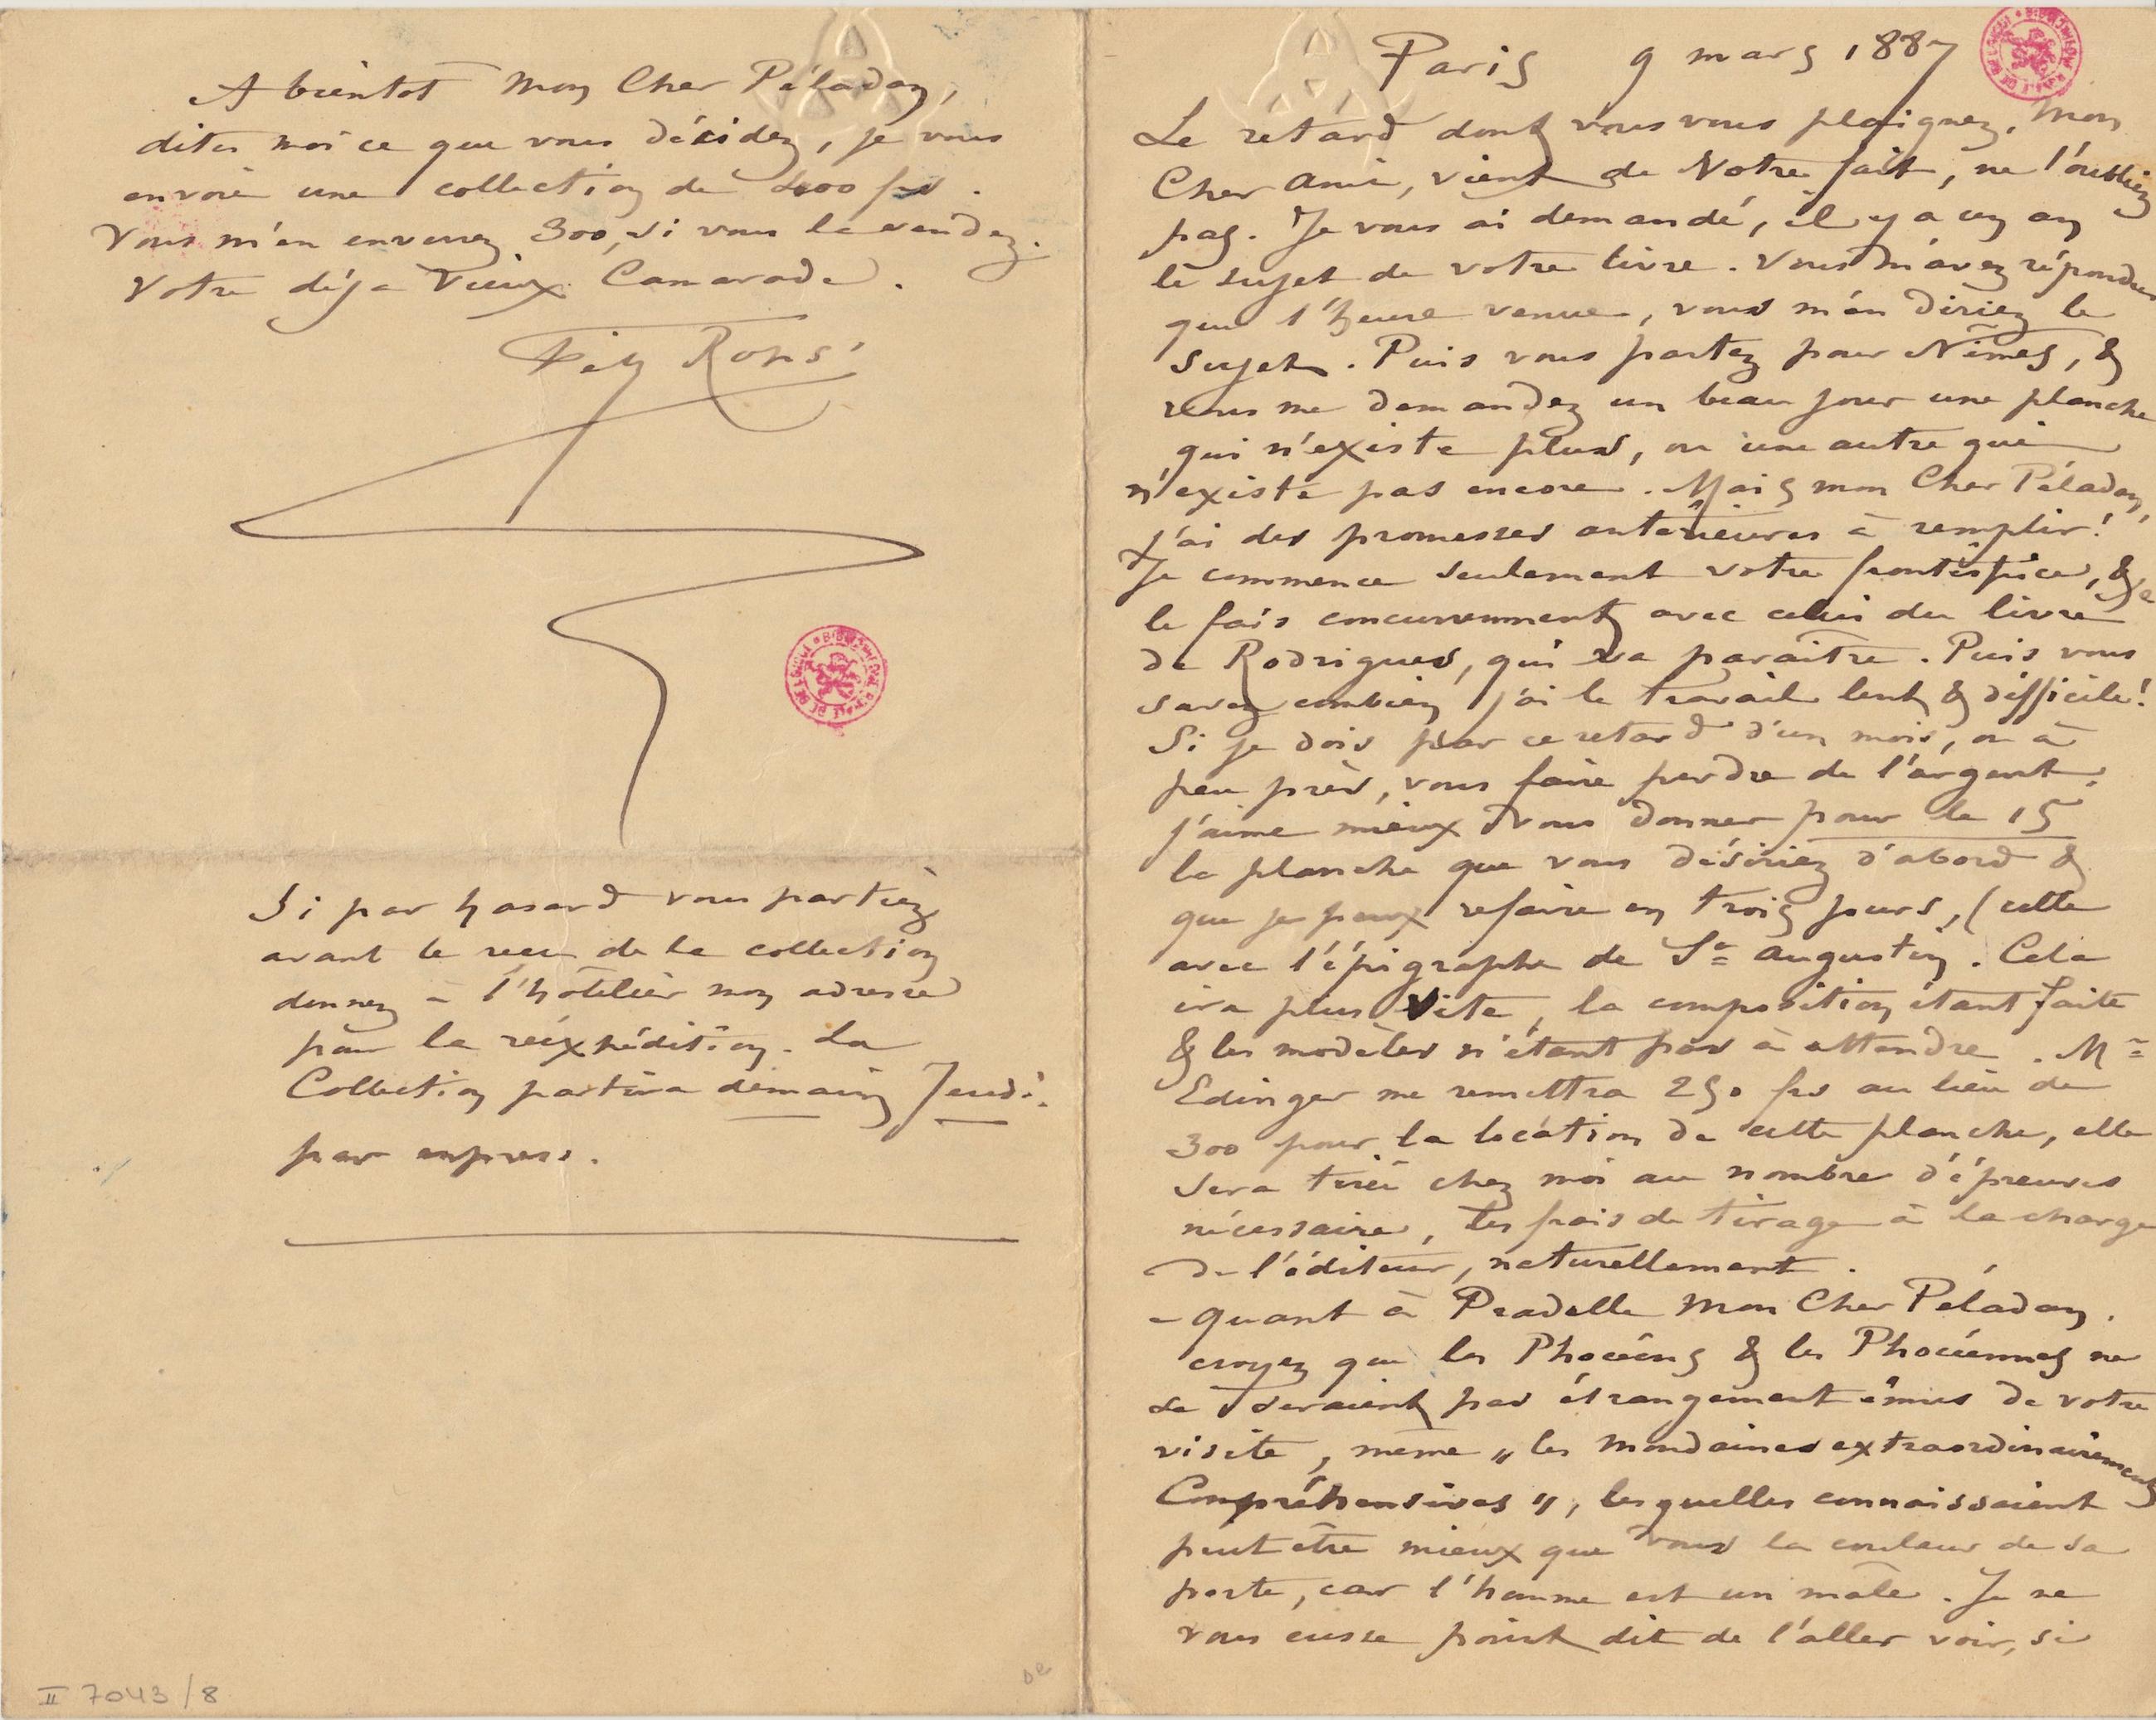 Paris 9 mars 1887
Le retard dont vous vous plaignez, Mon
Cher Ami, vient de Notre fait, ne l'oubliez
pas. Je vous ai demandé, il y a un an
le sujet de votre livre. Vous m'avez répondu
que l'heure venue, vous m'en diriez le
sujet. Puis vous partez pour Nîmes, &
vous me demandez un beau jour une planche
qui n'existe plus, ou une autre qui
n'existe pas encore. Mais mon Cher Péladan,
j'ai des promesses antérieures à remplir!
Je commence seulement votre frontispice, & je
le fais concurremment avec celui du livre
de Rodrigues, qui va paraître. Puis vous
savez combien j'ai le travail lent & difficile!
Si je dois par ce retard d'un mois, ou à
peu près, vous faire perdre de l'argent,
j'aime mieux vous donner pour le 15
la planche que vous désiriez d'abord &
que je peux refaire en trois jours, (celle
avec l'épigraphe de St Augustin. Cela
ira plus vite, la composition étant faite
& les modèles n'étant pas à attendre. Mr
Edinger me remettra 250 frs au lieu de
300 pour la location de cette planche, elle
sera tirée chez moi au nombre d'épreuves
nécessaire, les frais de tirage à la charge
de l'éditeur, naturellement.
- Quant à Pradelle Mon Cher Péladan,
croyez que les Phocéens & les Phocéennes ne
se seraient pas étrangement émus de votre
visite, même „ les Mondaines extraordinairement
Compréhensives „, lesquelles connaissaient
peut être mieux que vous la couleur de sa
porte, car l'homme est un mâle. Je ne
vous eusse point dit de l'aller voir, si
A bientot Mon Cher Péladan,
dites moi ce que vous décidez, je vous
envoie une collection de 400 frs.
Vous m'en enverrez 300, si vous la vendez.
Votre déjà Vieux Camarade.
Fély Rops
Si par hasard vous partiez
avant le reçu de la collection
donnez à l'hôtelier mon adresse
pour la réexpédition. La
Collection partira demain Jeudi.
par express.
II 7043/8